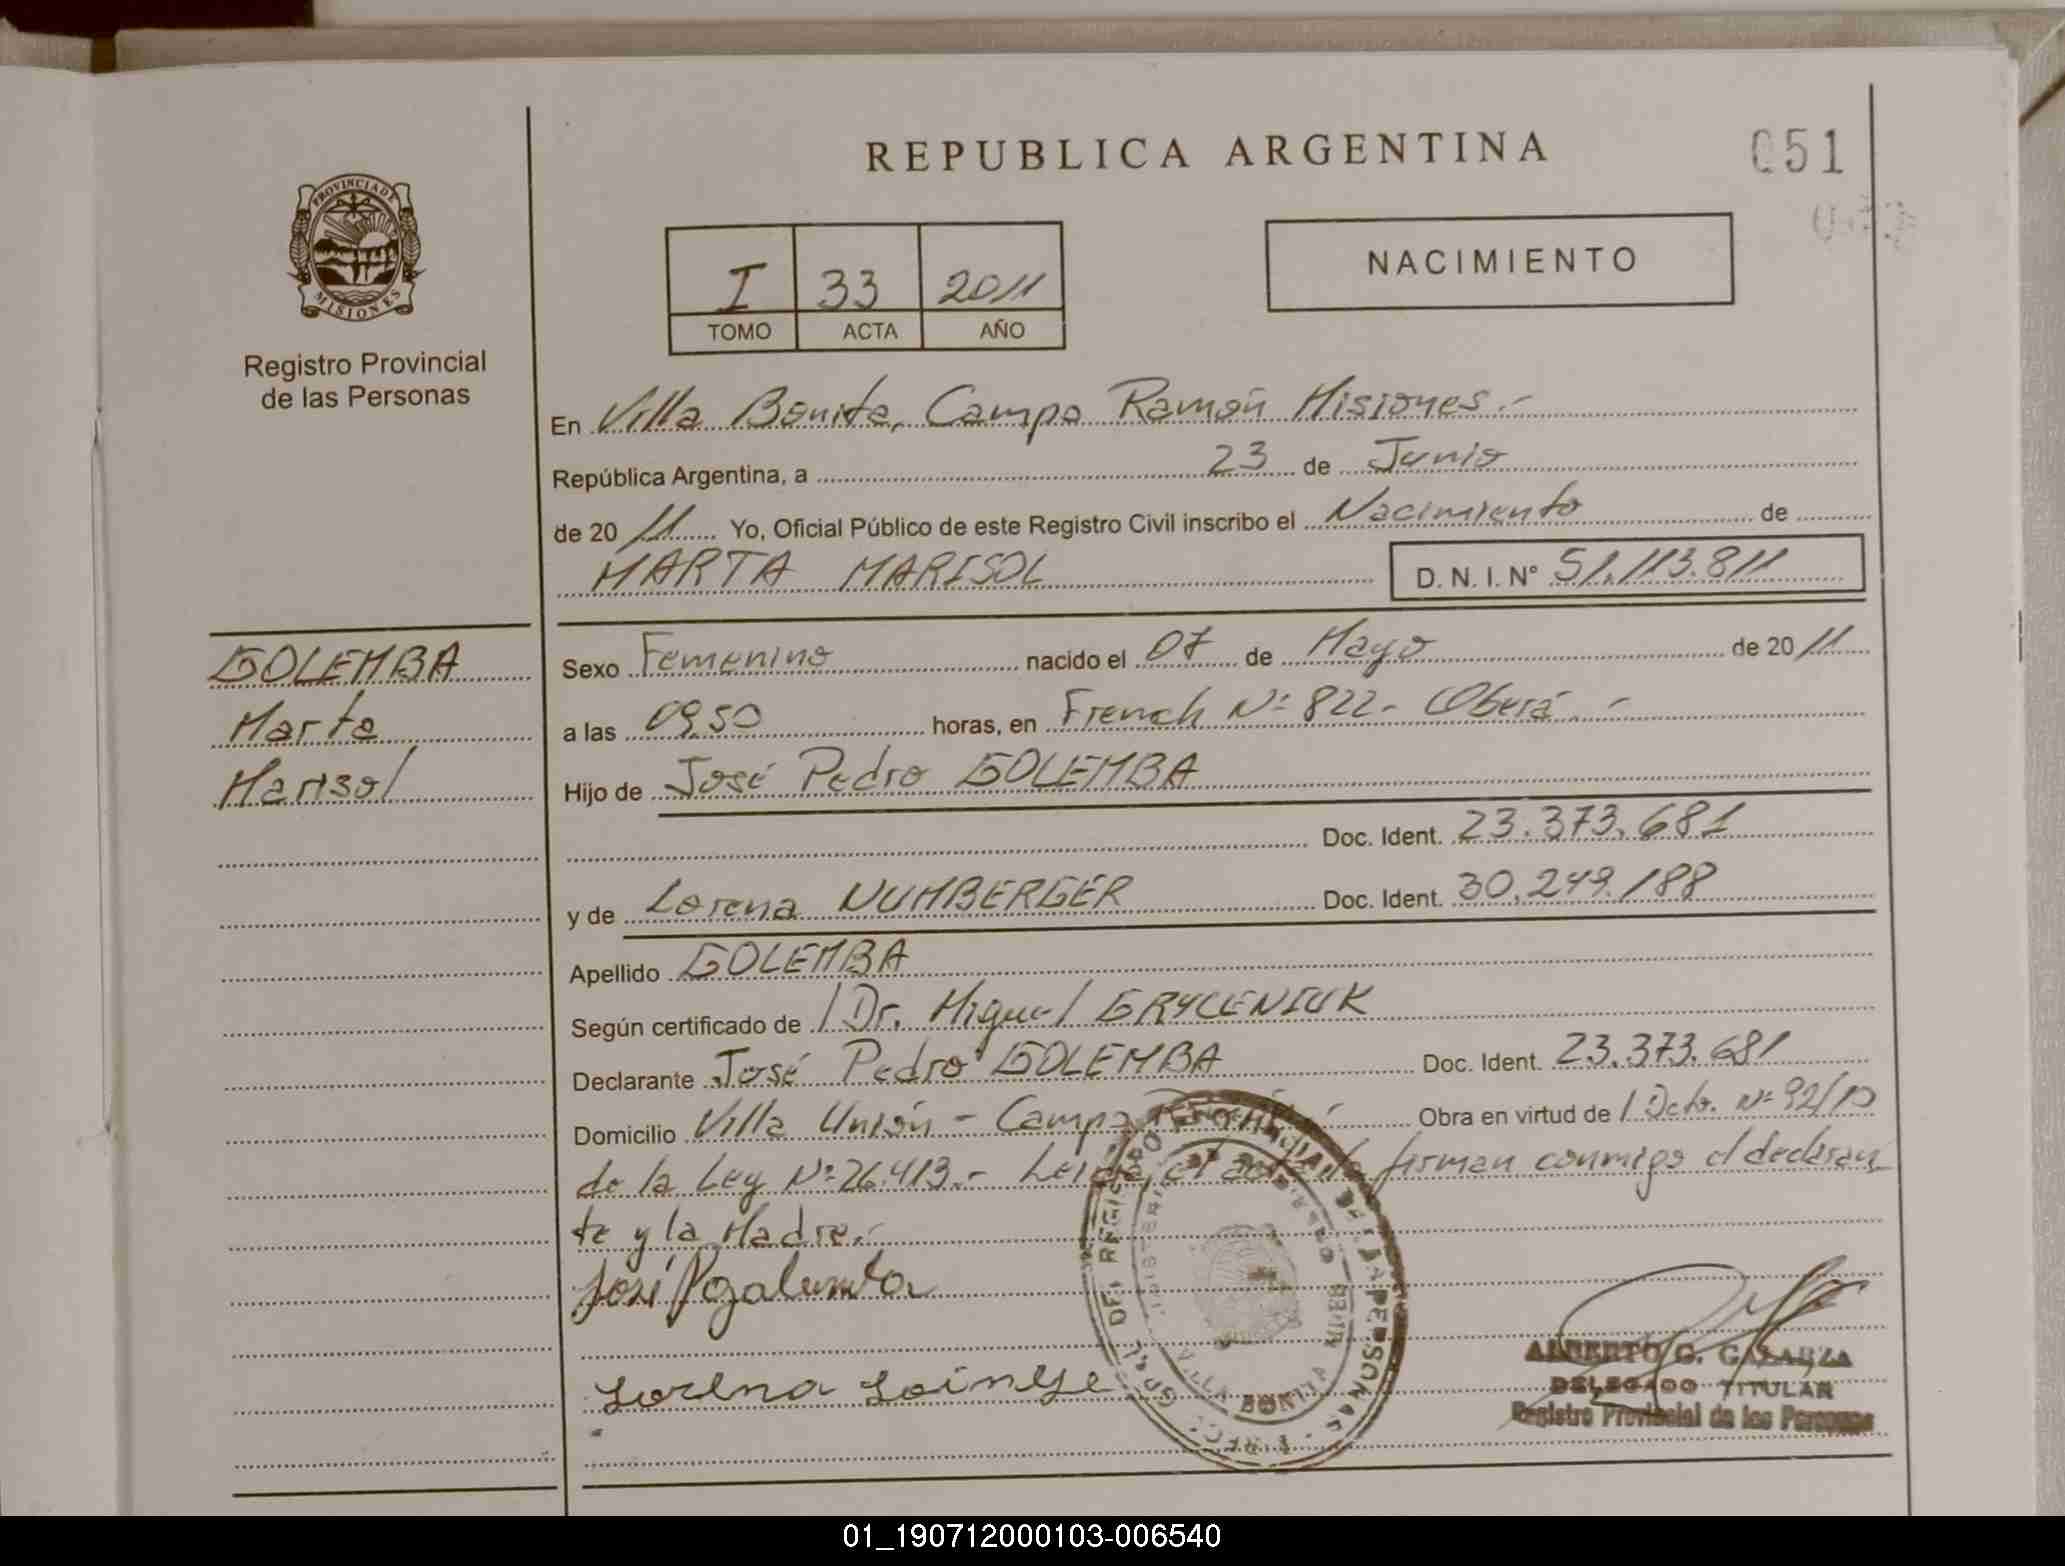 REPUBLICA ARGENTINA
051
PROVINCIA DE
MISIONES
Registro Provincial
de las Personas
I 33 2011
TOMO ACTA AÑO
NACIMIENTO
En Villa Bonita, Campo Ramón Misiones.-
República Argentina, a 23 de Junio
de 20 11 Yo, Oficial Público de este Registro Civil inscribo el Nacimiento de
MARTA MARISOL D. N. I. Nº 51.113.811
GOLEMBA
Marta
Marisol
Sexo Femenino nacido el 07 de Mayo de 20 11
a las 09,50 horas, en French Nº 822.- Oberá.-
Hijo de José Pedro GOLEMBA
Doc. Ident. 23.373.681
y de Lorena NUMBERGER Doc. Ident. 30.249.188
Apellido GOLEMBA
Según certificado de / Dr. Miguel GRYCENIUK
Declarante José Pedro GOLEMBA Doc. Ident. 23.373.681
Domicilio Villa Unión - Campo Obra en virtud de / Dcto. Nº 92/10
de la Ley Nº 26.413.- Leida el acta, la firman conmigo el declaran
te y la Madre.-
José P golemba
Lorena
VILLA BONITA
ALBERTO G. GALARZA
DELEGADO TITULAR
Registro Provincial de las Personas
01_190712000103-006540